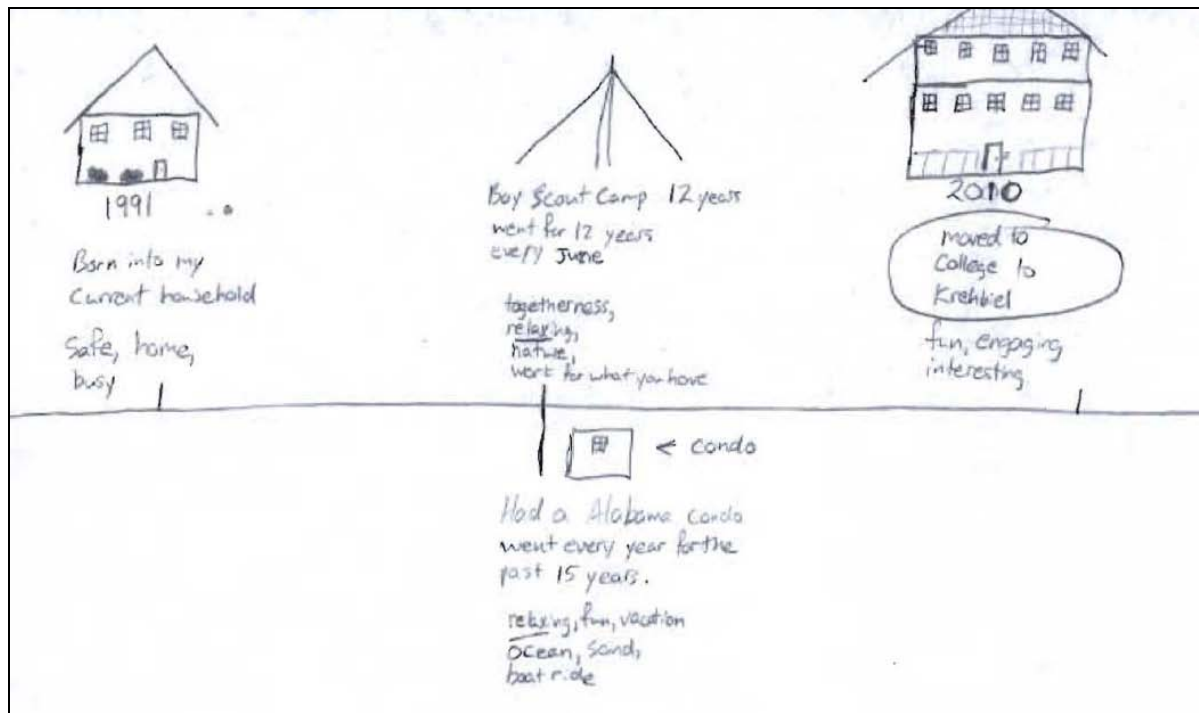 1991
Born into my
current household
Safe, home,
busy
Boy Scout Camp 12 years
went for 12 years
every June
togetherness,
relaxing,
nature,
work for what you have
2010
moved to
College to
Krehbiel
fun, engaging
interesting
< condo
Had a Alabama condo
went every year for the
past 15 years.
relaxing, fun, vacation
ocean, sand,
boat ride